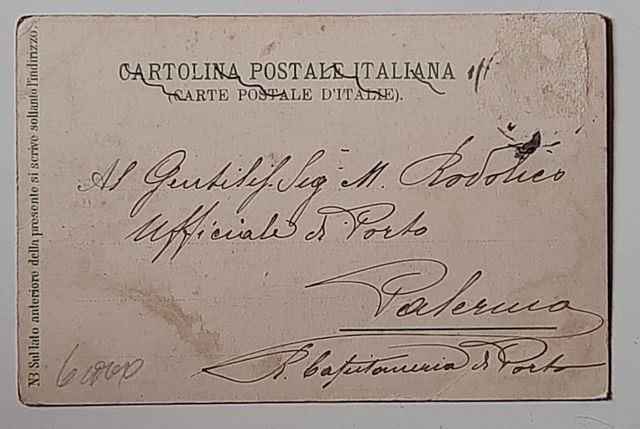 CARTOLINA POSTALE ITALIANA
(CARTE POSTALE D'ITALIE).
Al Gentilss. Sig M. Rodolico
Ufficiale di Porto
Palermo
R. Capitaneria di Porto
N3 Sul lato anteriore della presente si scrive soltanto l'indirizzo.